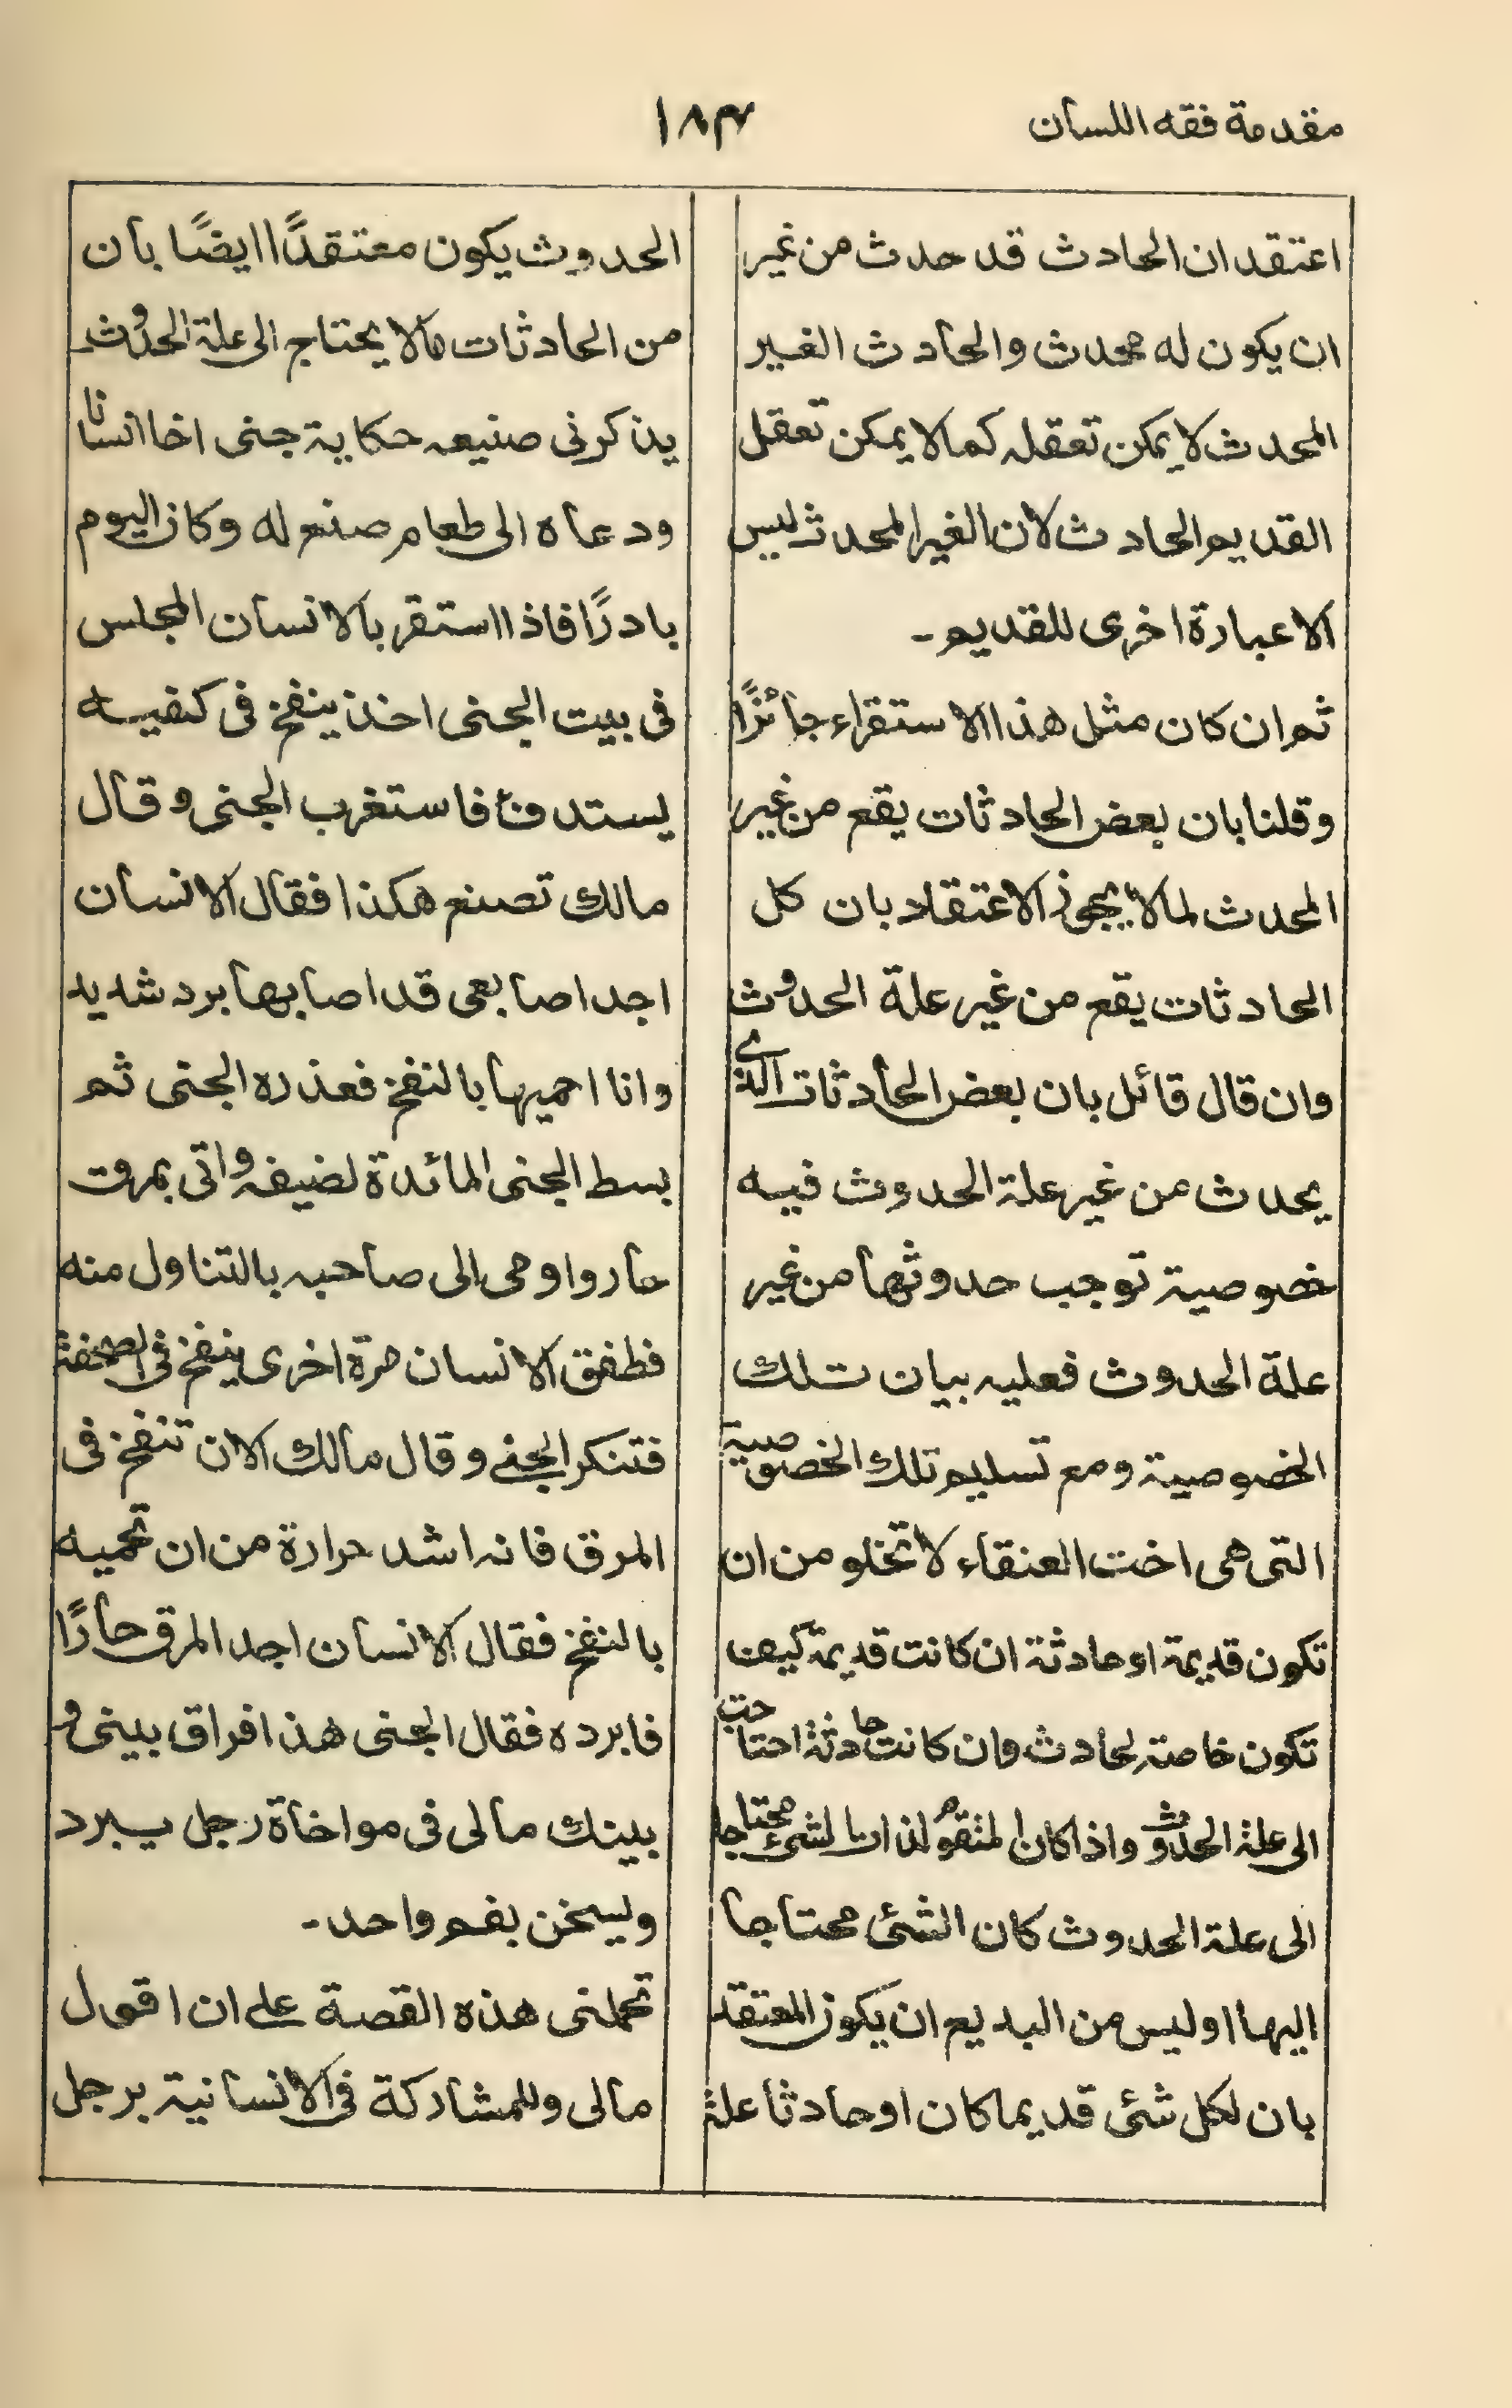 مقدمة فقه اللسان
١٨٣
اعتقد ان الحادث قد حدث من غير
ان يكون له محدث والحادث الغير
المحدث لا يمكن تعقله كما لا يمكن تعقل
القديم الحادث لان الغير المحدث ليس
الا عبارة اخرى للقديم ـ
ثم ان كان مثل هذا الاستقراء جائزًا
وقلنا بان بعض الحادثات يقع من غير
المحدث لما لا يجوز الاعتقاد بان كل
الحادثات يقع من غير علة الحدوث
وان قال قائل بان بعض الحادثات الذى
يحدث من غير علة الحدوث فيه
خصوصية توجب حدوثها من غير
علة الحدوث فعليه بيان تلك
الخصوصية ومع تسليم تلك الخصوصية
التى هى اخت العنقاء لا تخلو من ان
تكون قديمة او حادثة ان كانت قديمة كيف
تكون خاصة لحادث وان كانت حادثة احتاجت
الى علة الحدوث واذا كان المقوم لذات الشئ محتاجا
الى علة الحدوث كان الشئ محتاجا
اليها اوليس من البديع ان يكون المعتقد
بان لكل شئ قديما كان او حادثا علة
الحدوث يكون معتقدًا ايضًا بان
من الحادثات مالا يحتاج الى علة الحدوث
يذكرنى صنيعه حكاية جنى اخا انسانا
ودعاه الى طعام صنع له وكان اليوم
باردًا فاذا استقر بالانسان المجلس
فى بيت الجنى اخذ ينفخ فى كفيه
يستدفئ فاستغرب الجنى وقال
مالك تصنع هكذا فقال الانسان
اجد اصابعى قد اصابها برد شديد
وانا احميها بالنفخ فعذره الجنى ثم
بسط الجنى المائدة لضيفه واتى بمرق
حار واوحى الى صاحبه بالتناول منه
فطفق الانسان مرة اخرى ينفخ فى الصحفة
فتنكر الجنى وقال مالك الان تنفخ فى
المرق فانه اشد حرارة من ان تحميه
بالنفخ فقال الانسان اجد المرق حارًا
فابرده فقال الجنى هذا فراق بينى و
بينك مالى فى مواخاة رجل يبرد
ويسخن بفم واحد ـ
تحملنى هذه القصة على ان اقول
مالى وللمشاركة فى الانسانية برجل